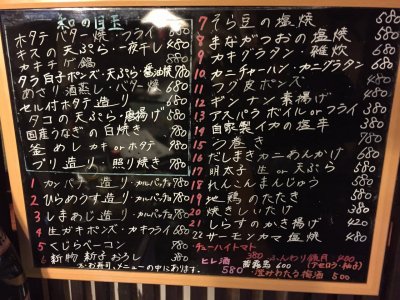 和の目玉
ホタテ バター焼・フライ 680
キスの天ぷら・一夜干し 480
カキチゲ鍋 880
タラ白子ポンズ・天ぷら・醤油焼 780
あさり酒蒸し・バター焼 680
セル付ホタテ造り 680
タコの天ぷら・唐揚げ 580
国産うなぎの白焼き 980
釜めし カキ or ホタテ 980
ブリ 造り 照り焼き 780
1 カンパチ造り・カルパッチョ 780
2 ひらめうす造り・カルパッチョ 780
3 しまあじ造り・カルパッチョ 780
4 生ガキポンズ・カキフライ 680
5 くじらベーコン 780
6 新物 新子おろし 380
☆お寿司、メニューの中にあります。
7 そら豆の塩焼 580
8 まながつおの塩焼 680
9 カキグラタン・雑炊 680
10 カニチャーハン・カニグラタン 680
11 フグ皮ポンズ 480
12 ギンナン素揚げ 480
13 アスパラ ボイル or フライ 580
14 自家製イカの塩辛 380
15 う巻き 780
16 だしまきカニあんかけ 680
17 明太子 生 or 天ぷら 580
18 れんこんまんじゅう 580
19 地鶏のたたき 580
20 焼きしいたけ 380
21 しらすのかき揚げ 480
22 サーモンカマ塩焼 480
・チューハイトマト 380
ヒレ酒 580
ふんわり鏡月 400
(アセロラ・柚子)
600
澄みわたる梅酒 500